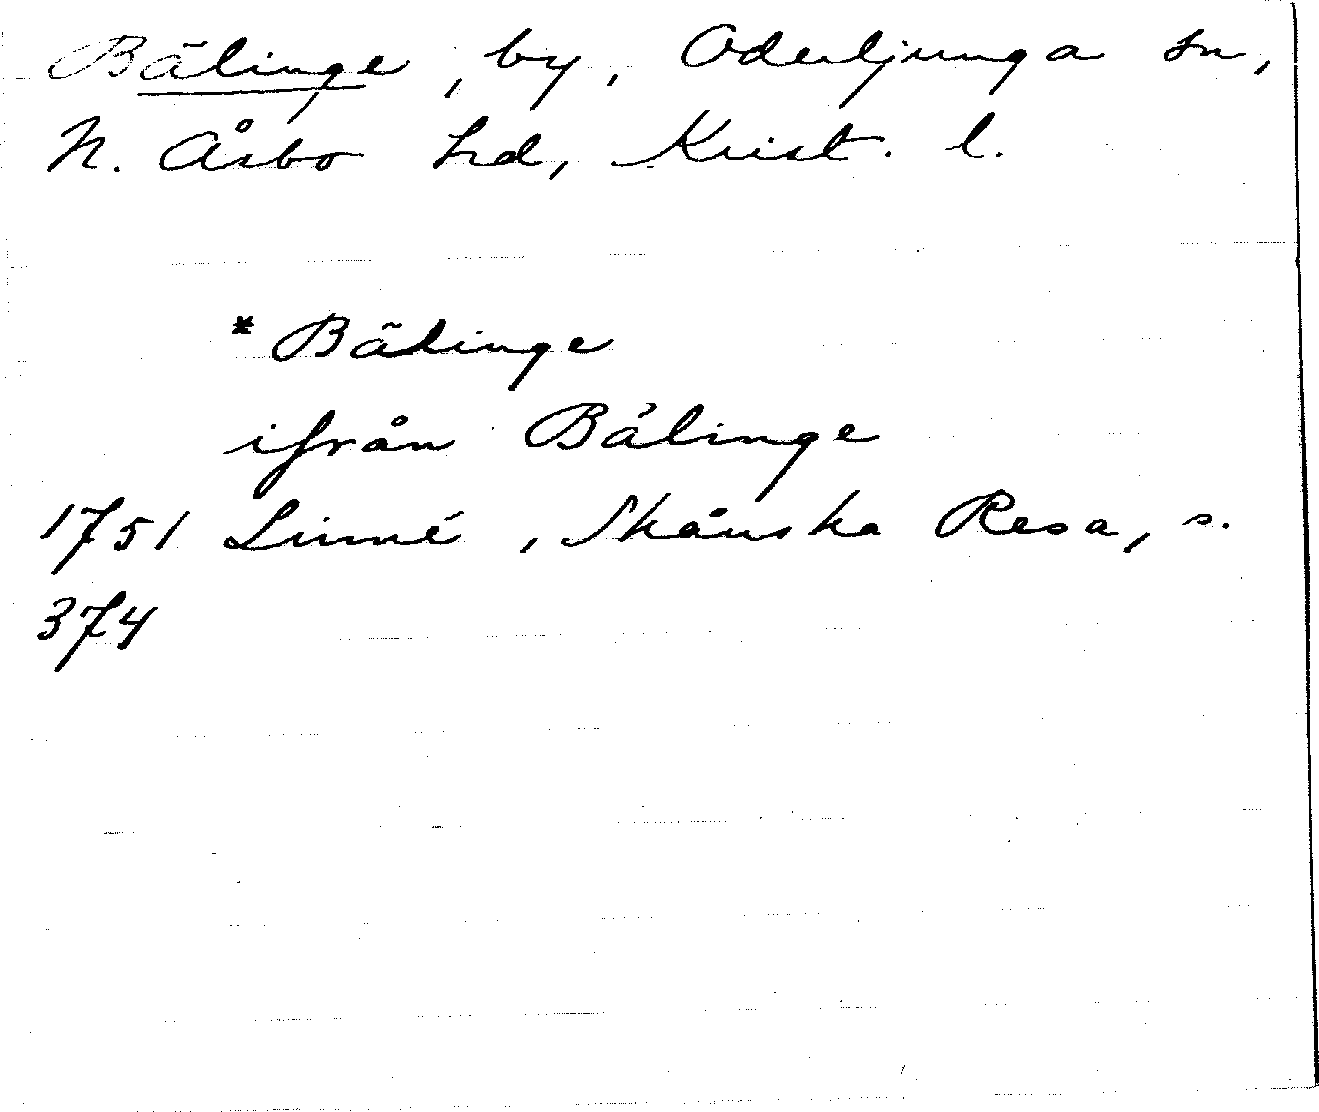 Bälinge, by, Oderljunga sn,
N. Åsbo hd, Krist. l.
* Bälinge
ifrån Bålinge
1751 Linné, Skånska Resa, s.
374